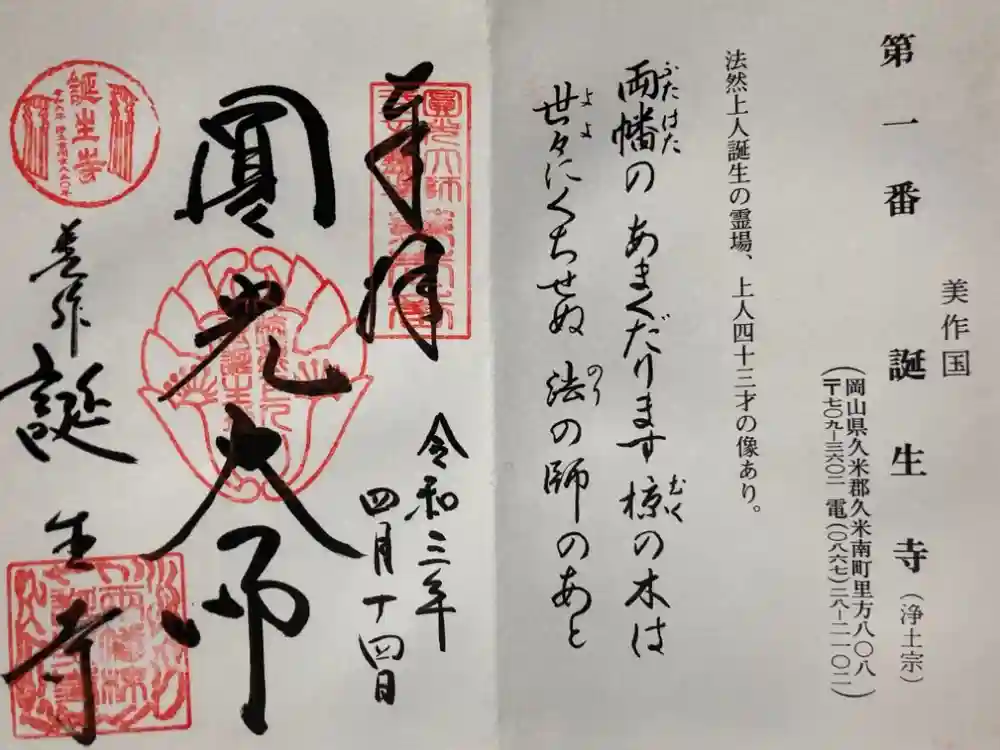 美作国
第一番 誕生寺(浄土宗)
(岡山県久米郡久米南町里方八〇八
〒七〇九-三六〇二 電(〇八六七)二八-二一〇二)
法然上人誕生の霊場、上人四十三才の像あり。
両幡の あまくだります 椋の木は
ふたはた
むく
世々にくちせぬ 法の師のあと
よよ
のり
奉拝
令和三年
四月十四日
圓光大師
美作
誕生寺
誕生寺